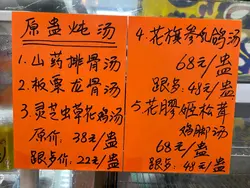 原蛊炖汤
1.山药排骨汤
2.板栗龙骨汤
3.灵芝虫草花鸡汤
原价:38元/蛊
跟多价:22元/蛊
4.花旗参乳鸽汤
68元/蛊
跟多:48元/蛊
5.花胶姬松茸
鸡脚汤
68元/蛊
跟多:48元/蛊